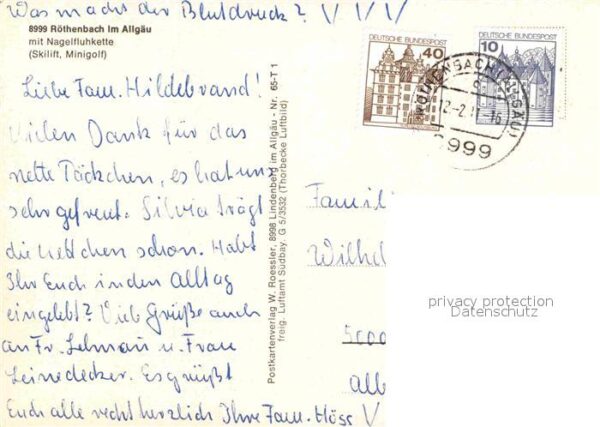 Was macht der Blutdruck? V V V
8999 Röthenbach im Allgäu
mit Nagelfluhkette
(Skilift, Minigolf)
Liebe Fam. Hildebrand!
Vielen Dank für das
nette Päckchen, es hat uns
sehr gefreut. Silvia trägt
die Kettchen schon. Habt
Ihr Euch in den Alltag
eingelebt? Viele Grüße auch
an Fr. Lehman u. Frau
Leinedecker. Es grüßt
Euch alle recht herzlich Ihre Fam. Höss V
Postkartenverlag W. Roessler, 8998 Lindenberg im Allgäu - Nr. 65-T 1
freig. Luftamt Südbay. G 5/3532 (Thorbecke Luftbild)
DEUTSCHE BUNDESPOST
40
DEUTSCHE BUNDESPOST
10
8999
Famili
Wilhel
privacy protection
Datenschutz